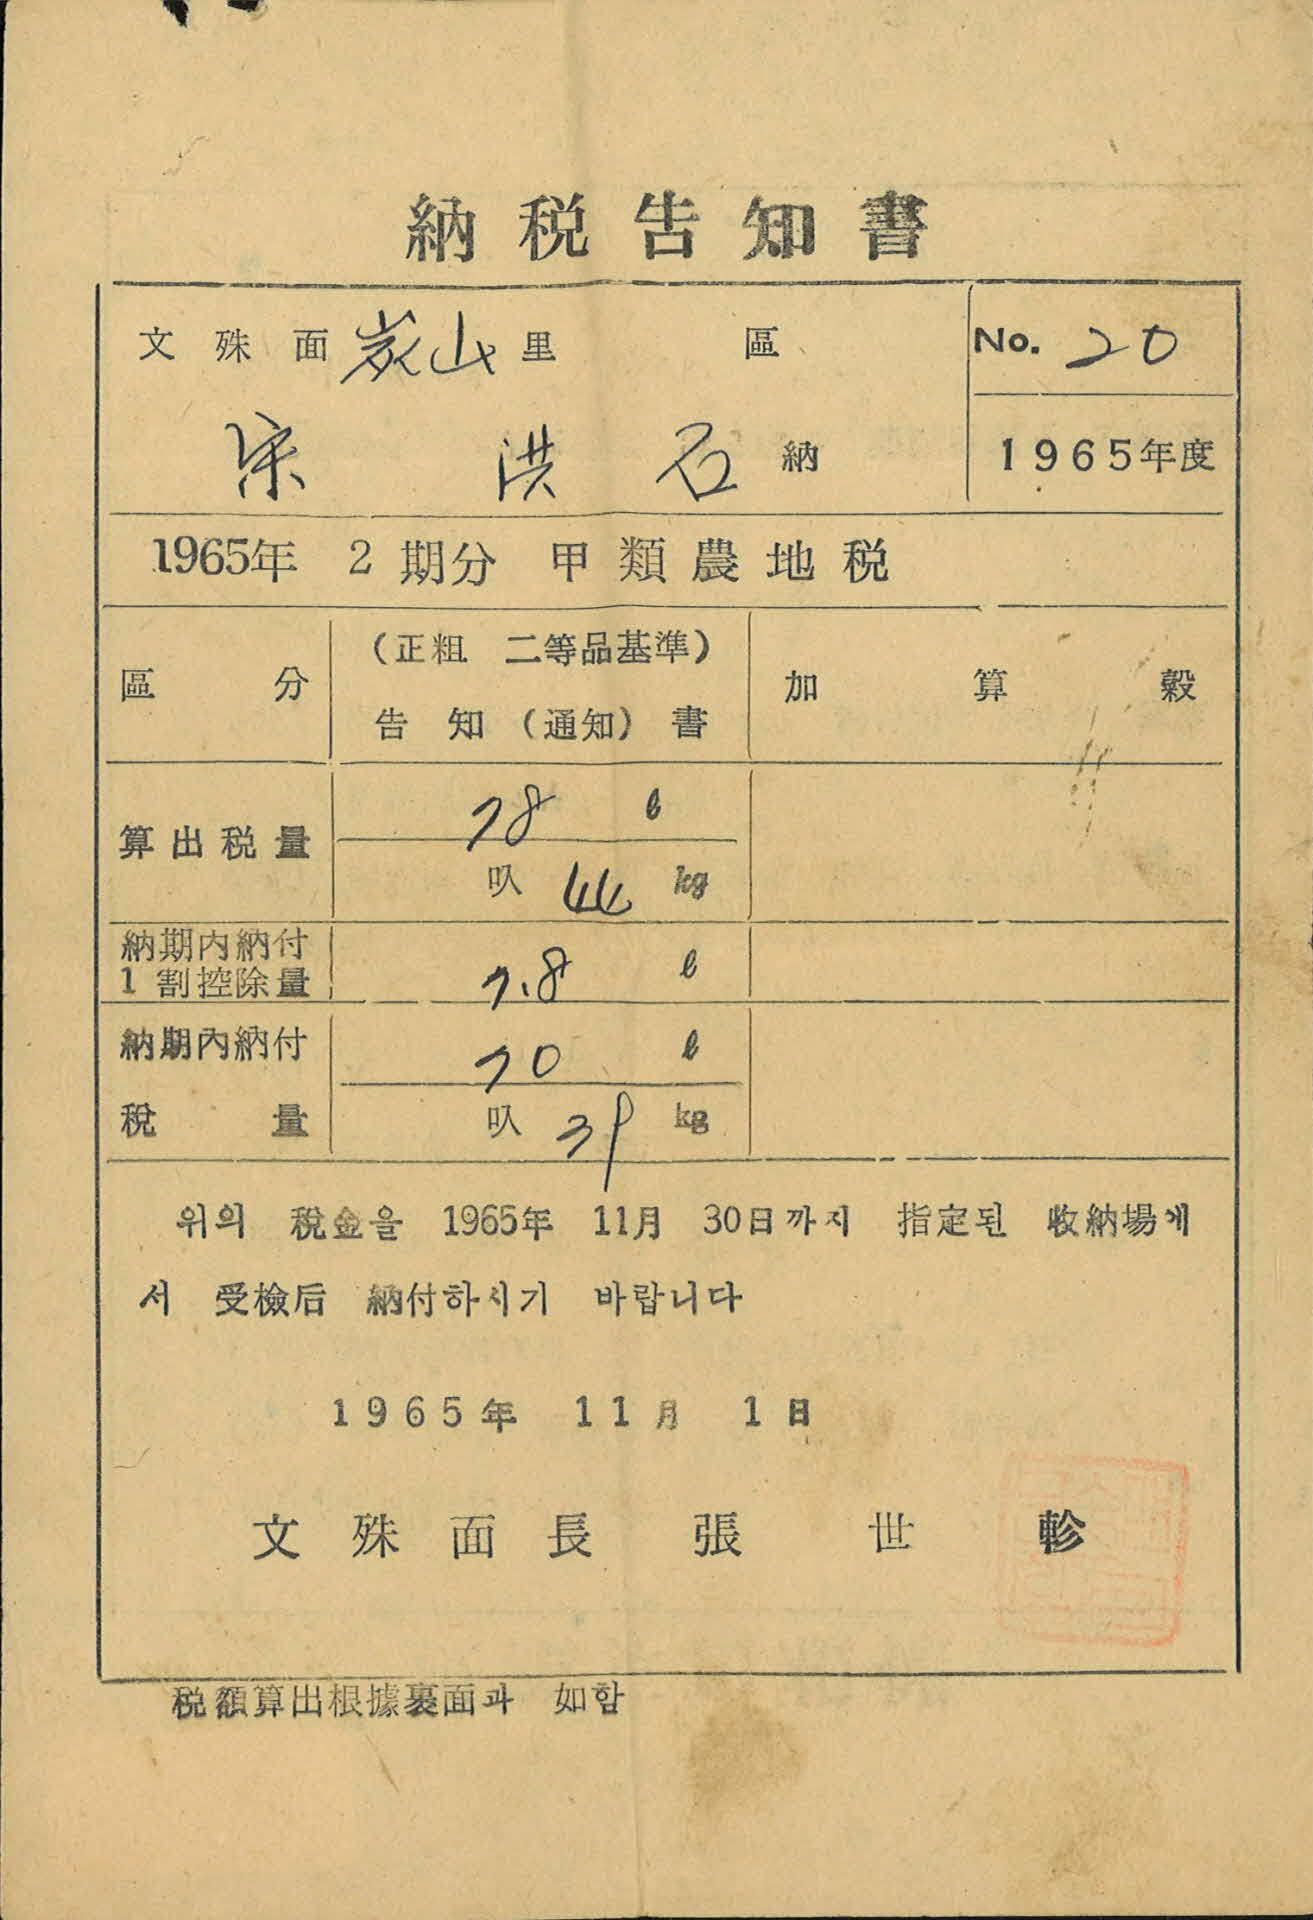 納税告知書
文殊面炭山里 區 No. 20
宋洪石 納 1965年度
1965年 2期分 甲類農地税
區分 (正粗 二等品基準) 告知(通知)書 加算穀
算出税量 78 ℓ
叺 44 kg
納期内納付
1割控除量 7.8 ℓ
納期內納付 70 ℓ
税量 叺 39 kg
위의 稅金을 1965年 11月 30日까지 指定된 收納場에
서 受檢后 納付하시기 바랍니다
1965年 11月 1日
文殊面長 張世軫
税額算出根據裏面과 如함